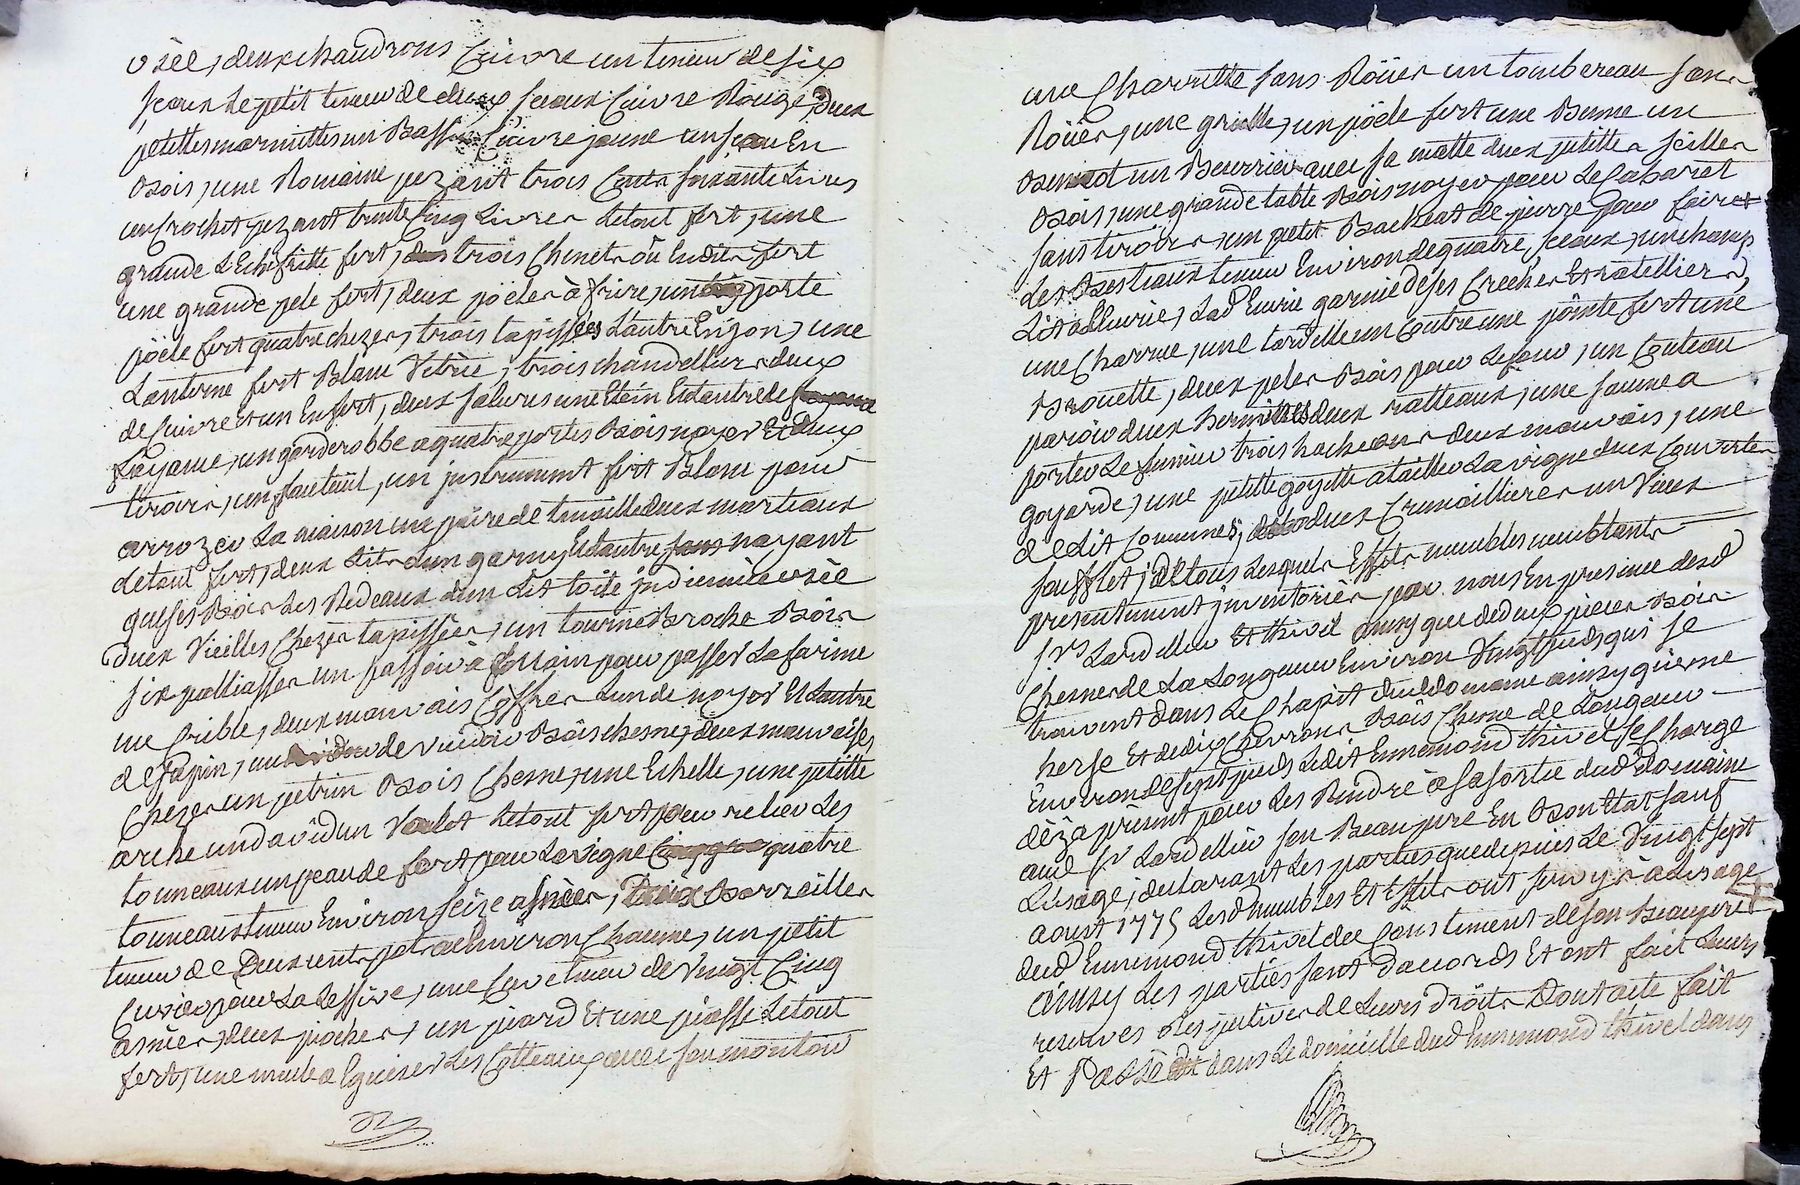 usèe, deux chaudrons Cuivre un teneur de six
sceaux Le petit teneur de deux sceaux Cuivre Rouge, deux
petittes marmittes un Bassin Cuivre jaune un sceau En
Bois, une Romaine pezant trois Cents soixante Livres
un Crochet pezant trente Cinq Livres Le tout fert, une
grande Lechifritte fert, trois Chenets ou Endits fert
une grande pele fert, deux pöeles à frire, un porte
pöele fert quatre chezes, trois tapissées L'autre En jon, une
Lanterne fert Blanc Vitrèe, trois chandelliers deux
de Cuivre et un En fert, deux salieres une Etein Et L'autre de
fayance, un garderobbe a quatre portes Bois noyer Et deux
tiroirs, un fauteüil, un jnstrument fert Blanc pour
arrozer La maison une paire de tenaille deux marteaux
detout fert, deux Lits L'un garny Et L'autre nayant
que ses Bois Les Rideaux d'un Lit toile jndienne usèe
deux Vieilles Chezes tapissèes, un tourne Broche Bois
six palliasses un passoir à pour passer La farine
une Crible, deux mauvais Coffres L'un de noyer Et L'autre
de sapin, un de Bois chesne, deux mauvaises
Chezes un petrin Bois Chesne, une Echelle, une petitte
arche un david un Valet Le tout fert pour relier Les
tonneaux un peau de fert pour La vigne quatre
tonneaux teneur Environ seize asnèes, Barreilles
teneur de Deux cents pot a Environ Chacune, un petit
Cuvier pour La Lessive, une Cuve teneur de Vingt Cinq
asnèes, deux pioches, un piard Et une piasse Le tout
fert, une meule a Eguiser Les Cotteaux avec son montou
une Charrette sans Roües un tombereau sans
Roües, une grille, un pöele fert une Benne un
Benot un Beurrier avec sa matte deux petittes seilles
Bois, une grande table Bois noyer pour Le Cabaret
sans tiroirs, un petit Bachat de pierre pour faire
des Bestiaux teneur Environ de quatre sceaux, un champ
Lit a L'Ecurie, Lad. Ecurie garnie de ses Creches Et ratelliers,
une Charrue, une tardelle un Coutre une pointe fert une
Brouette, deux peles Bois pour Le four, un Couteau
paroir deux deux ratteaux, une saume a
porter Le fumier trois hacheaux deux mauvais, une
goyarde, une petitte goyette a tailler La vigne deux Couvertes
de Lit Communes, deux Cremaillieres un Vieux
soufflet, de tous Lesquels Effets meubles meublants
presentement jnventoriès par nous En presence desd.
srs Lardellier Et thivel ainsy que de deux pieces Bois
Chesne de La Longueur Environ Vingt pieds qui se
trouvent dans Le Chapit dud. domaine ainsy qu'erne
herse Et de dix Chevrons Bois Chesne de Longeur
Environ de sept pieds Ledit Ennemond thivel se Charge
dèz a present pour Les Rendre à sa sortie dud. Domaine
aud. sr Lardellier son Beaupere En Bon Etat sauf
L'usage; declarant Les parties que depuis Le Vingt sept
aoust 1775 Lesd. meubles Et Effets ont servy à L'usage
dud. Ennemond thivel du Consentement de son Beaupere
ainsy Les parties sont D'accords Et ont fait Leurs
reserves respectives de Leurs droits Dont acte fait
Et Passè dans Le domicille dud. Ennemond thivel dans